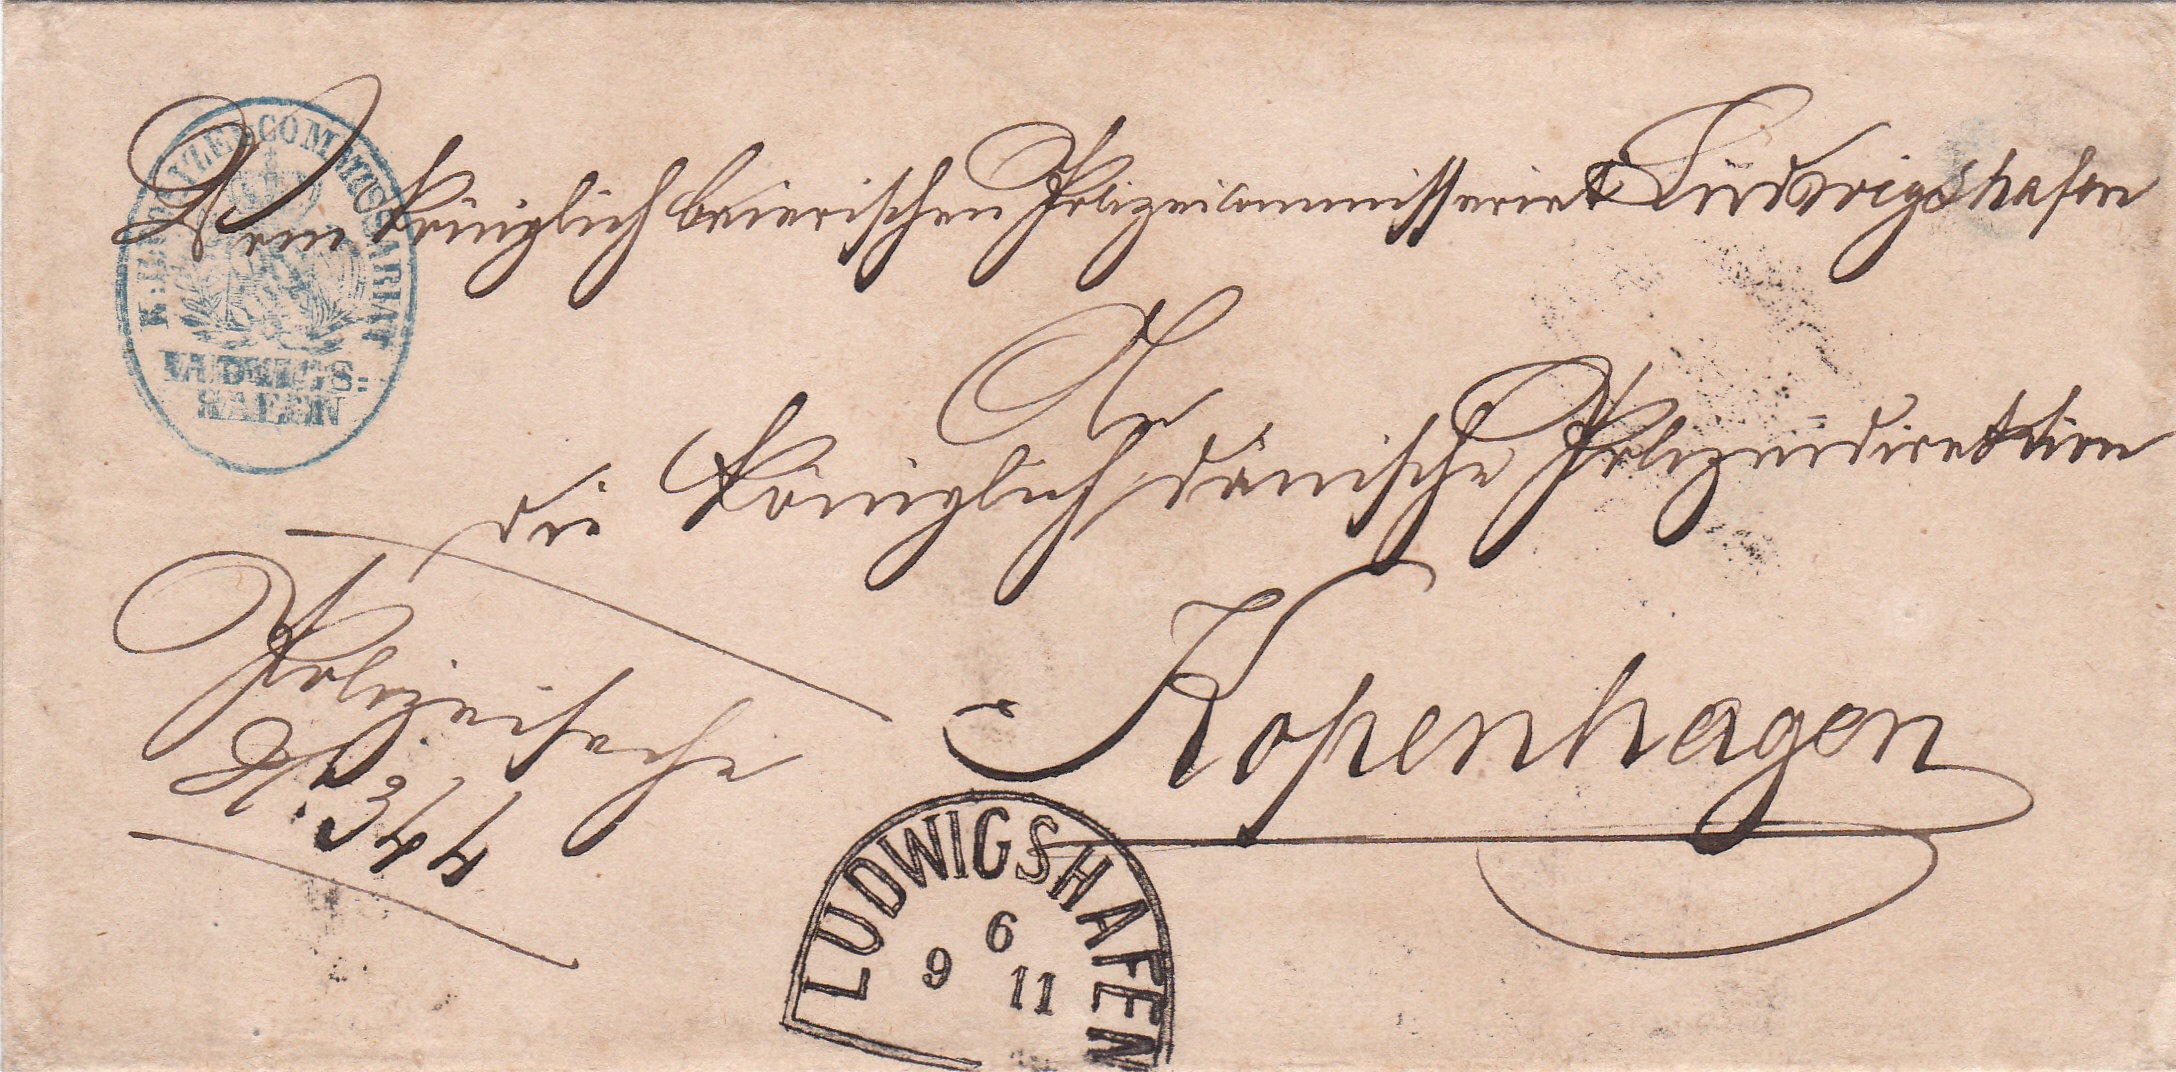 K: BR: POLIZEI-COMMISSARIAT
LUDWIGS-
HAFEN
königlich baierischen Polizeikommissariat Ludwigshafen
An
die Königlich dänische Polizeidirektion
Kopenhagen
Polizeisache
LUDWIGSHAFEN
6
9 11